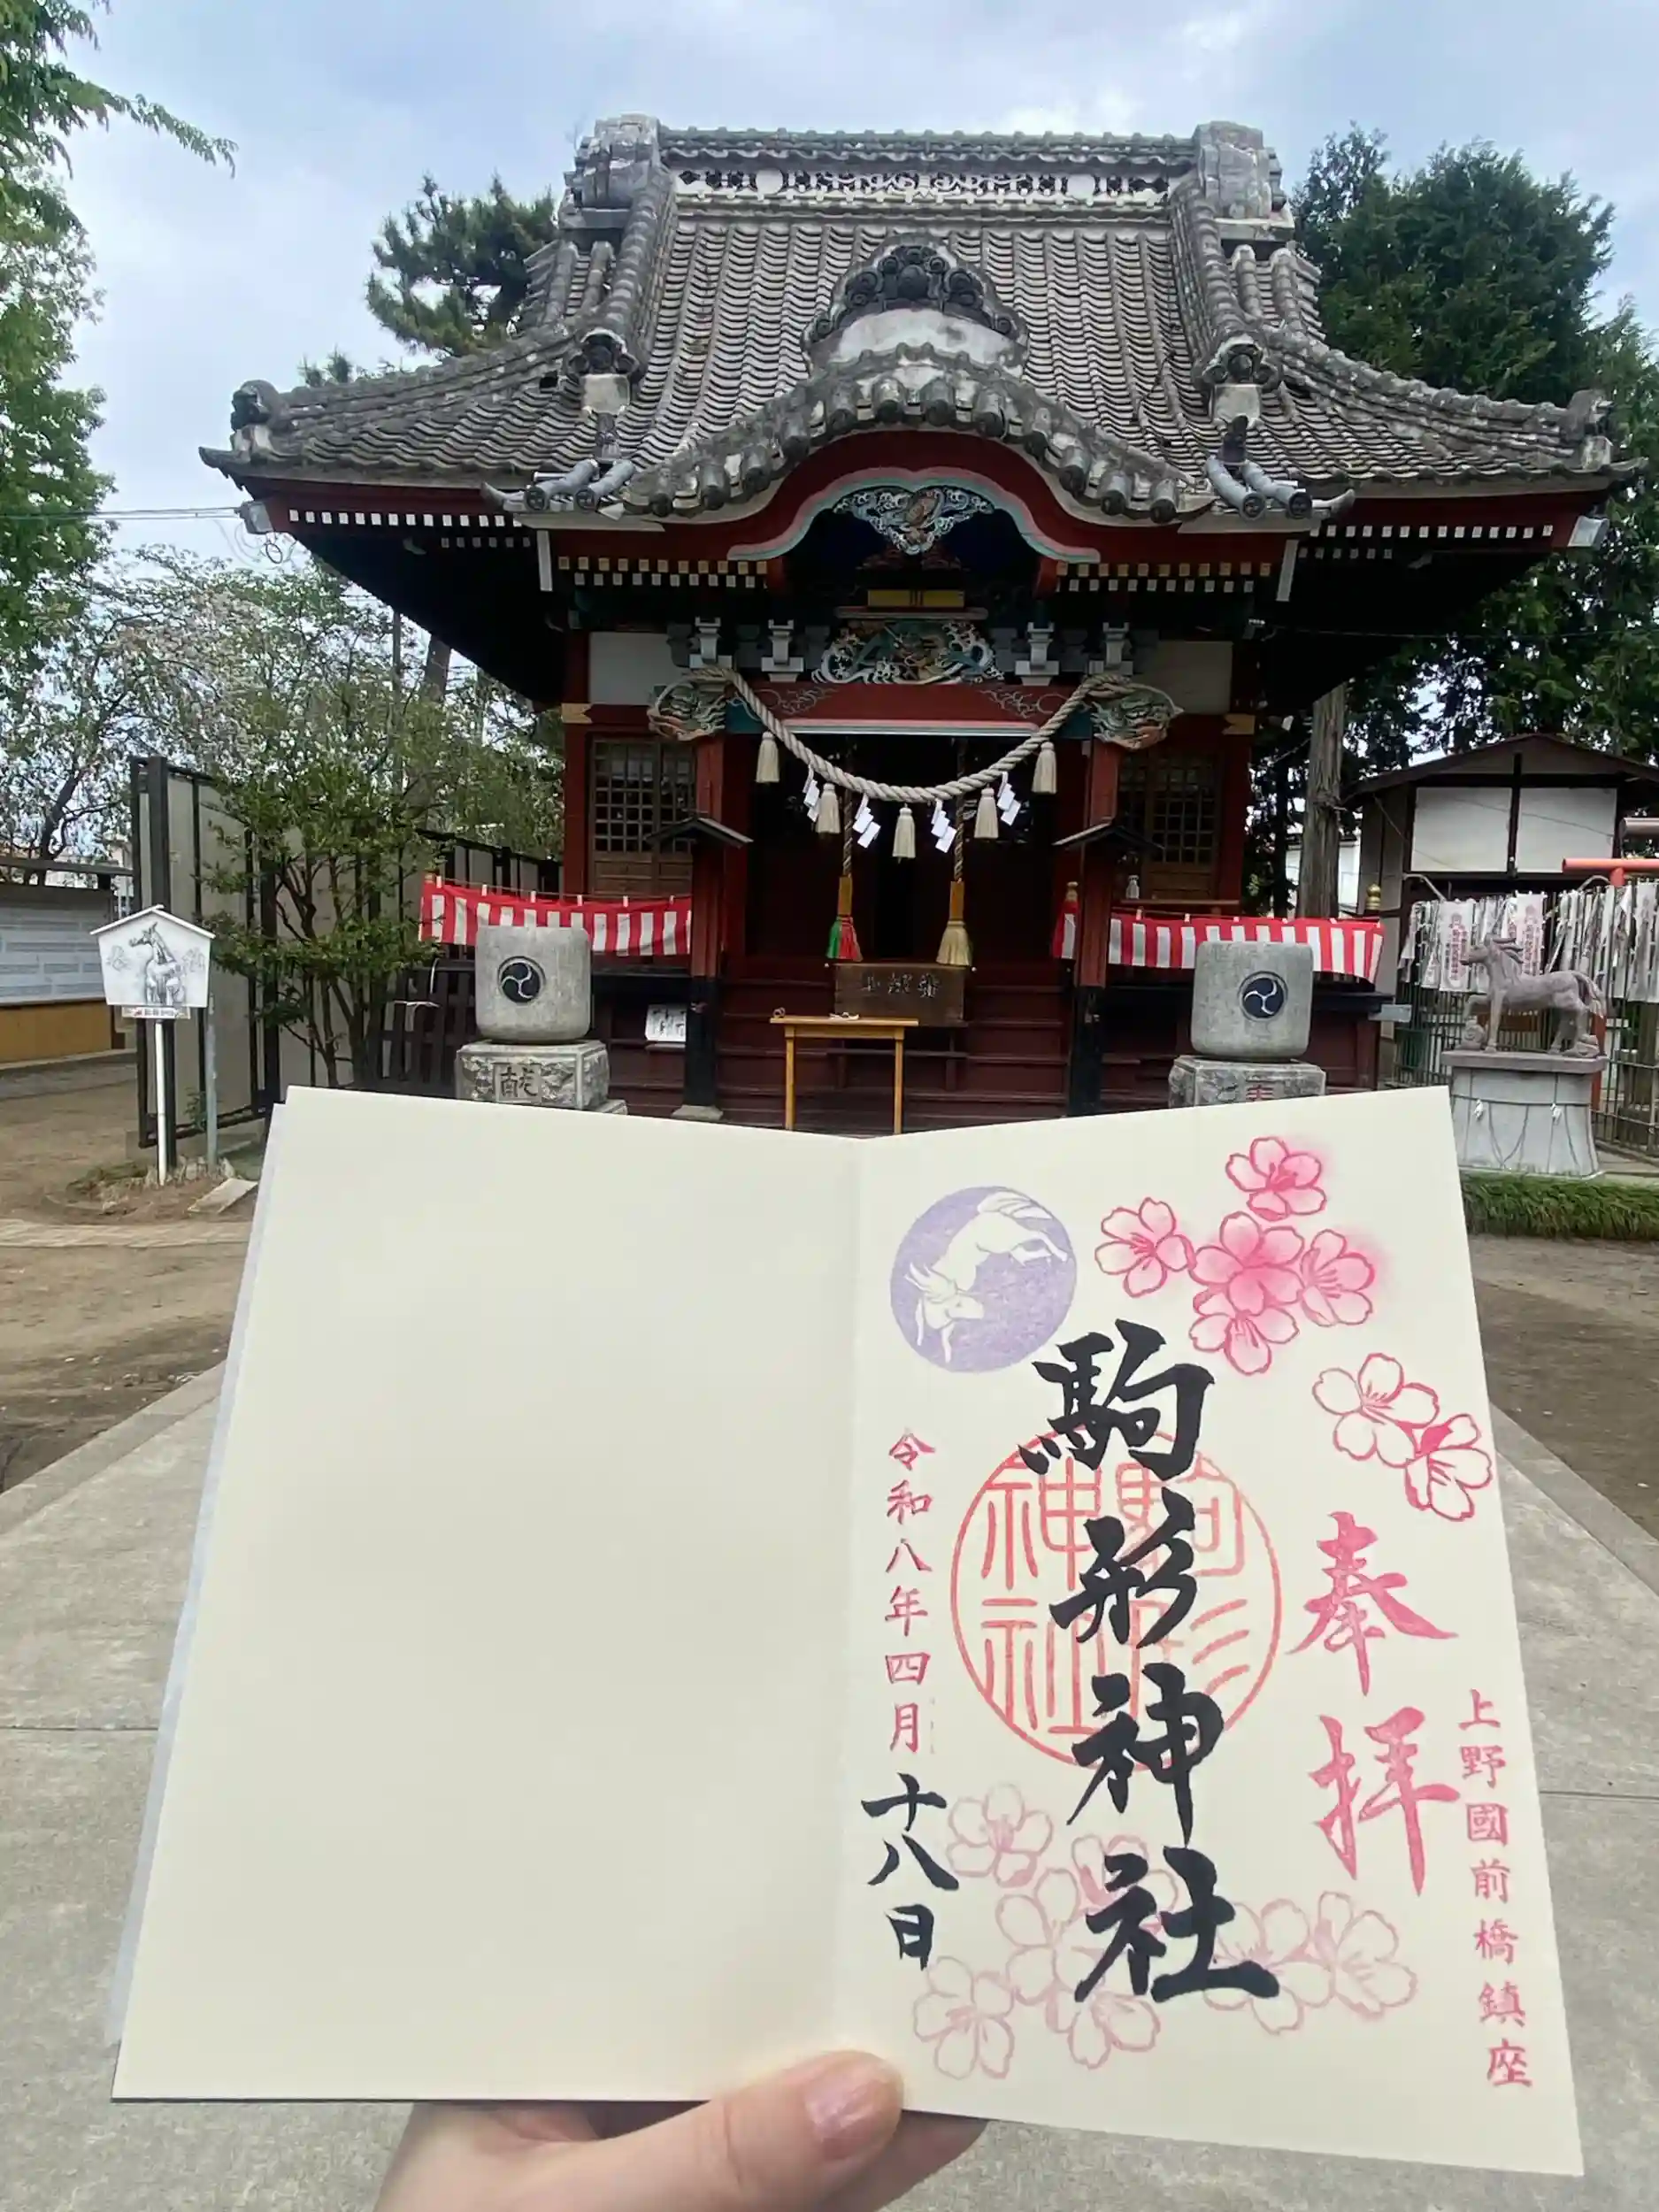 献
奉
上野國前橋鎮座
奉拝
駒形神社
駒形神社
令和八年四月
十八日